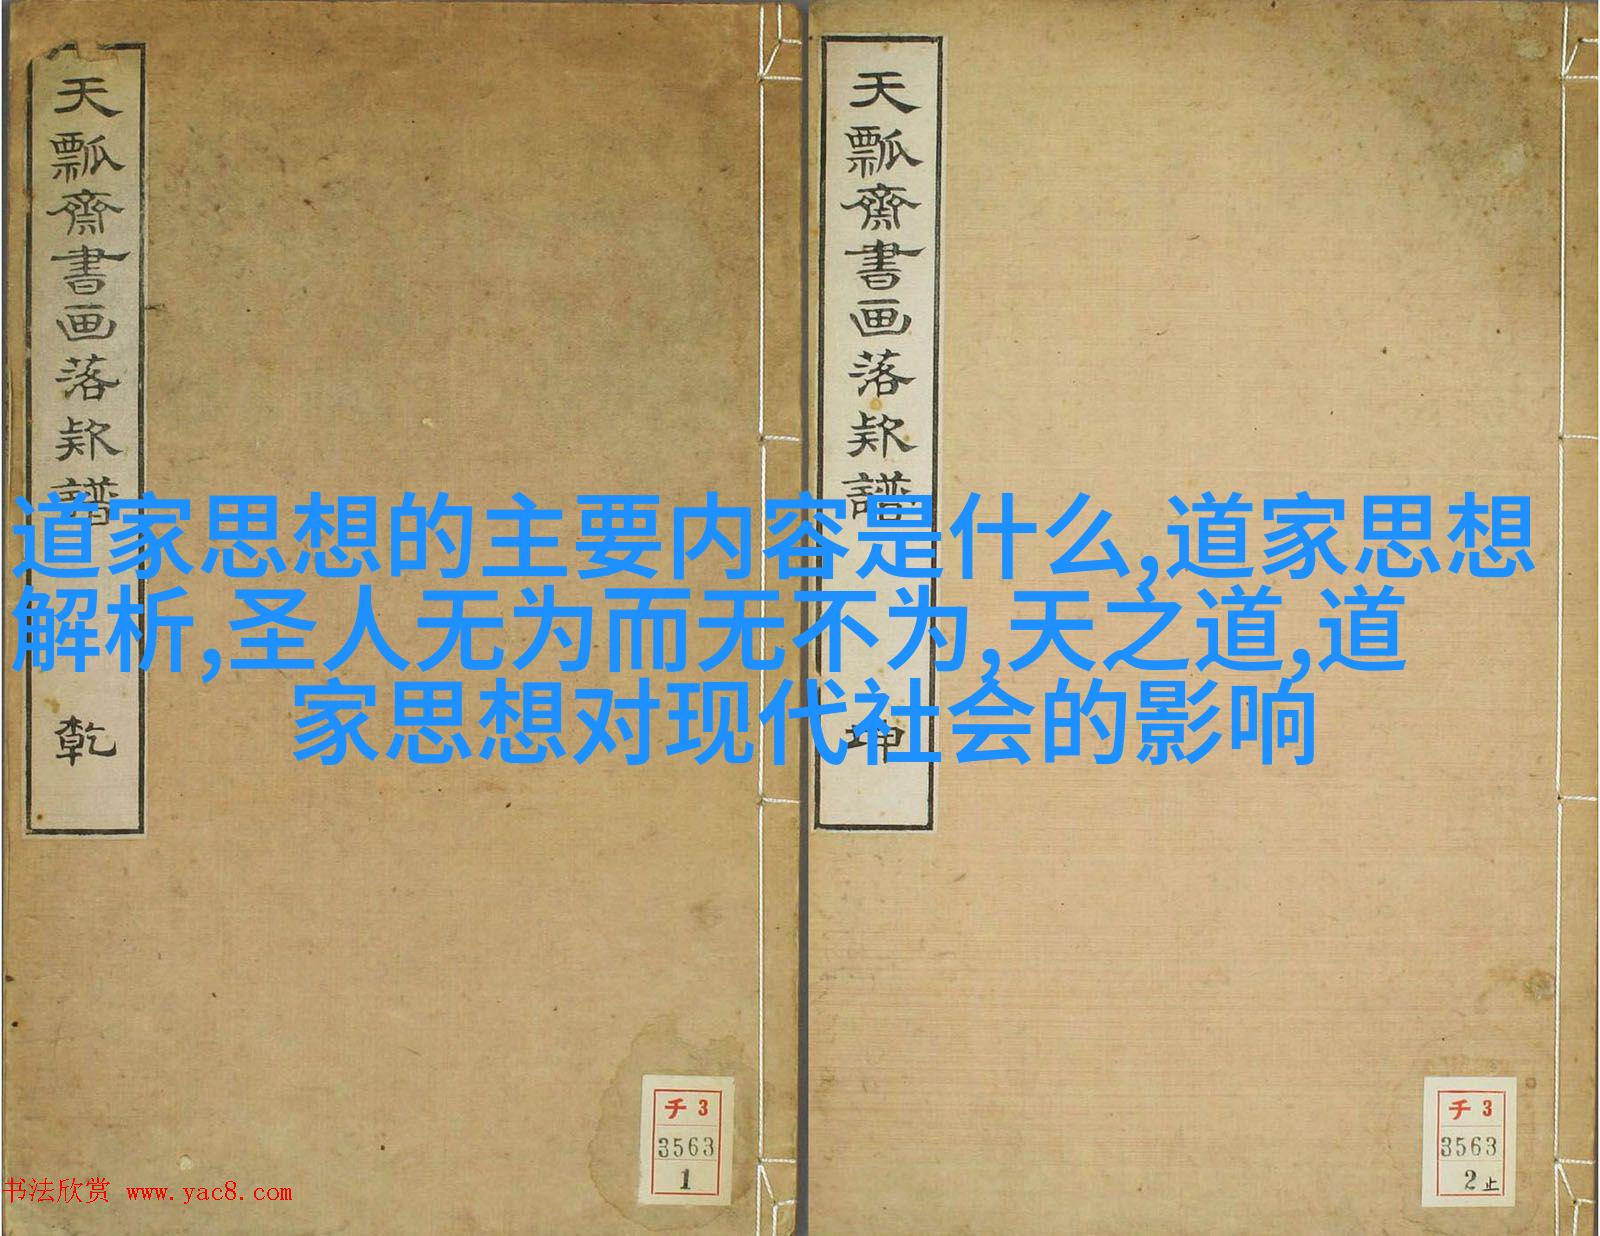 天瓢齋書画落欵譜
乾
天瓢齋書画落欵譜
坤
道家思想的主要内容是什么,道家思想
解析,圣人无为而无不为,天之道,道
家思想对现代社会的影响
チ 3
3563
1
チ 3
3563
2止
书法欣赏 www.yac8.com